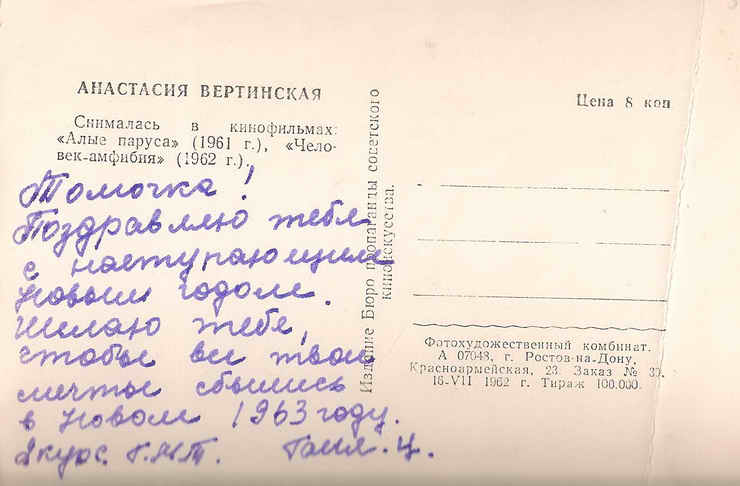 АНАСТАСИЯ ВЕРТИНСКАЯ
Снималась в кинофильмах:
«Алые паруса» (1961 г.), «Чело-
век-амфибия» (1962 г.).
Томочка!
Поздравляю тебя
с наступающим
Новым годом.
Желаю тебе,
чтобы все твои
мечты сбылись
в Новом 1963 году.
курс.
Издание Бюро пропаганды советского
киноискусства.
Цена 8 коп
Фотохудожественный комбинат.
А 07043, г. Ростов-на-Дону,
Красноармейская, 23. Заказ №
16-VII 1962 г. Тираж 100.000.